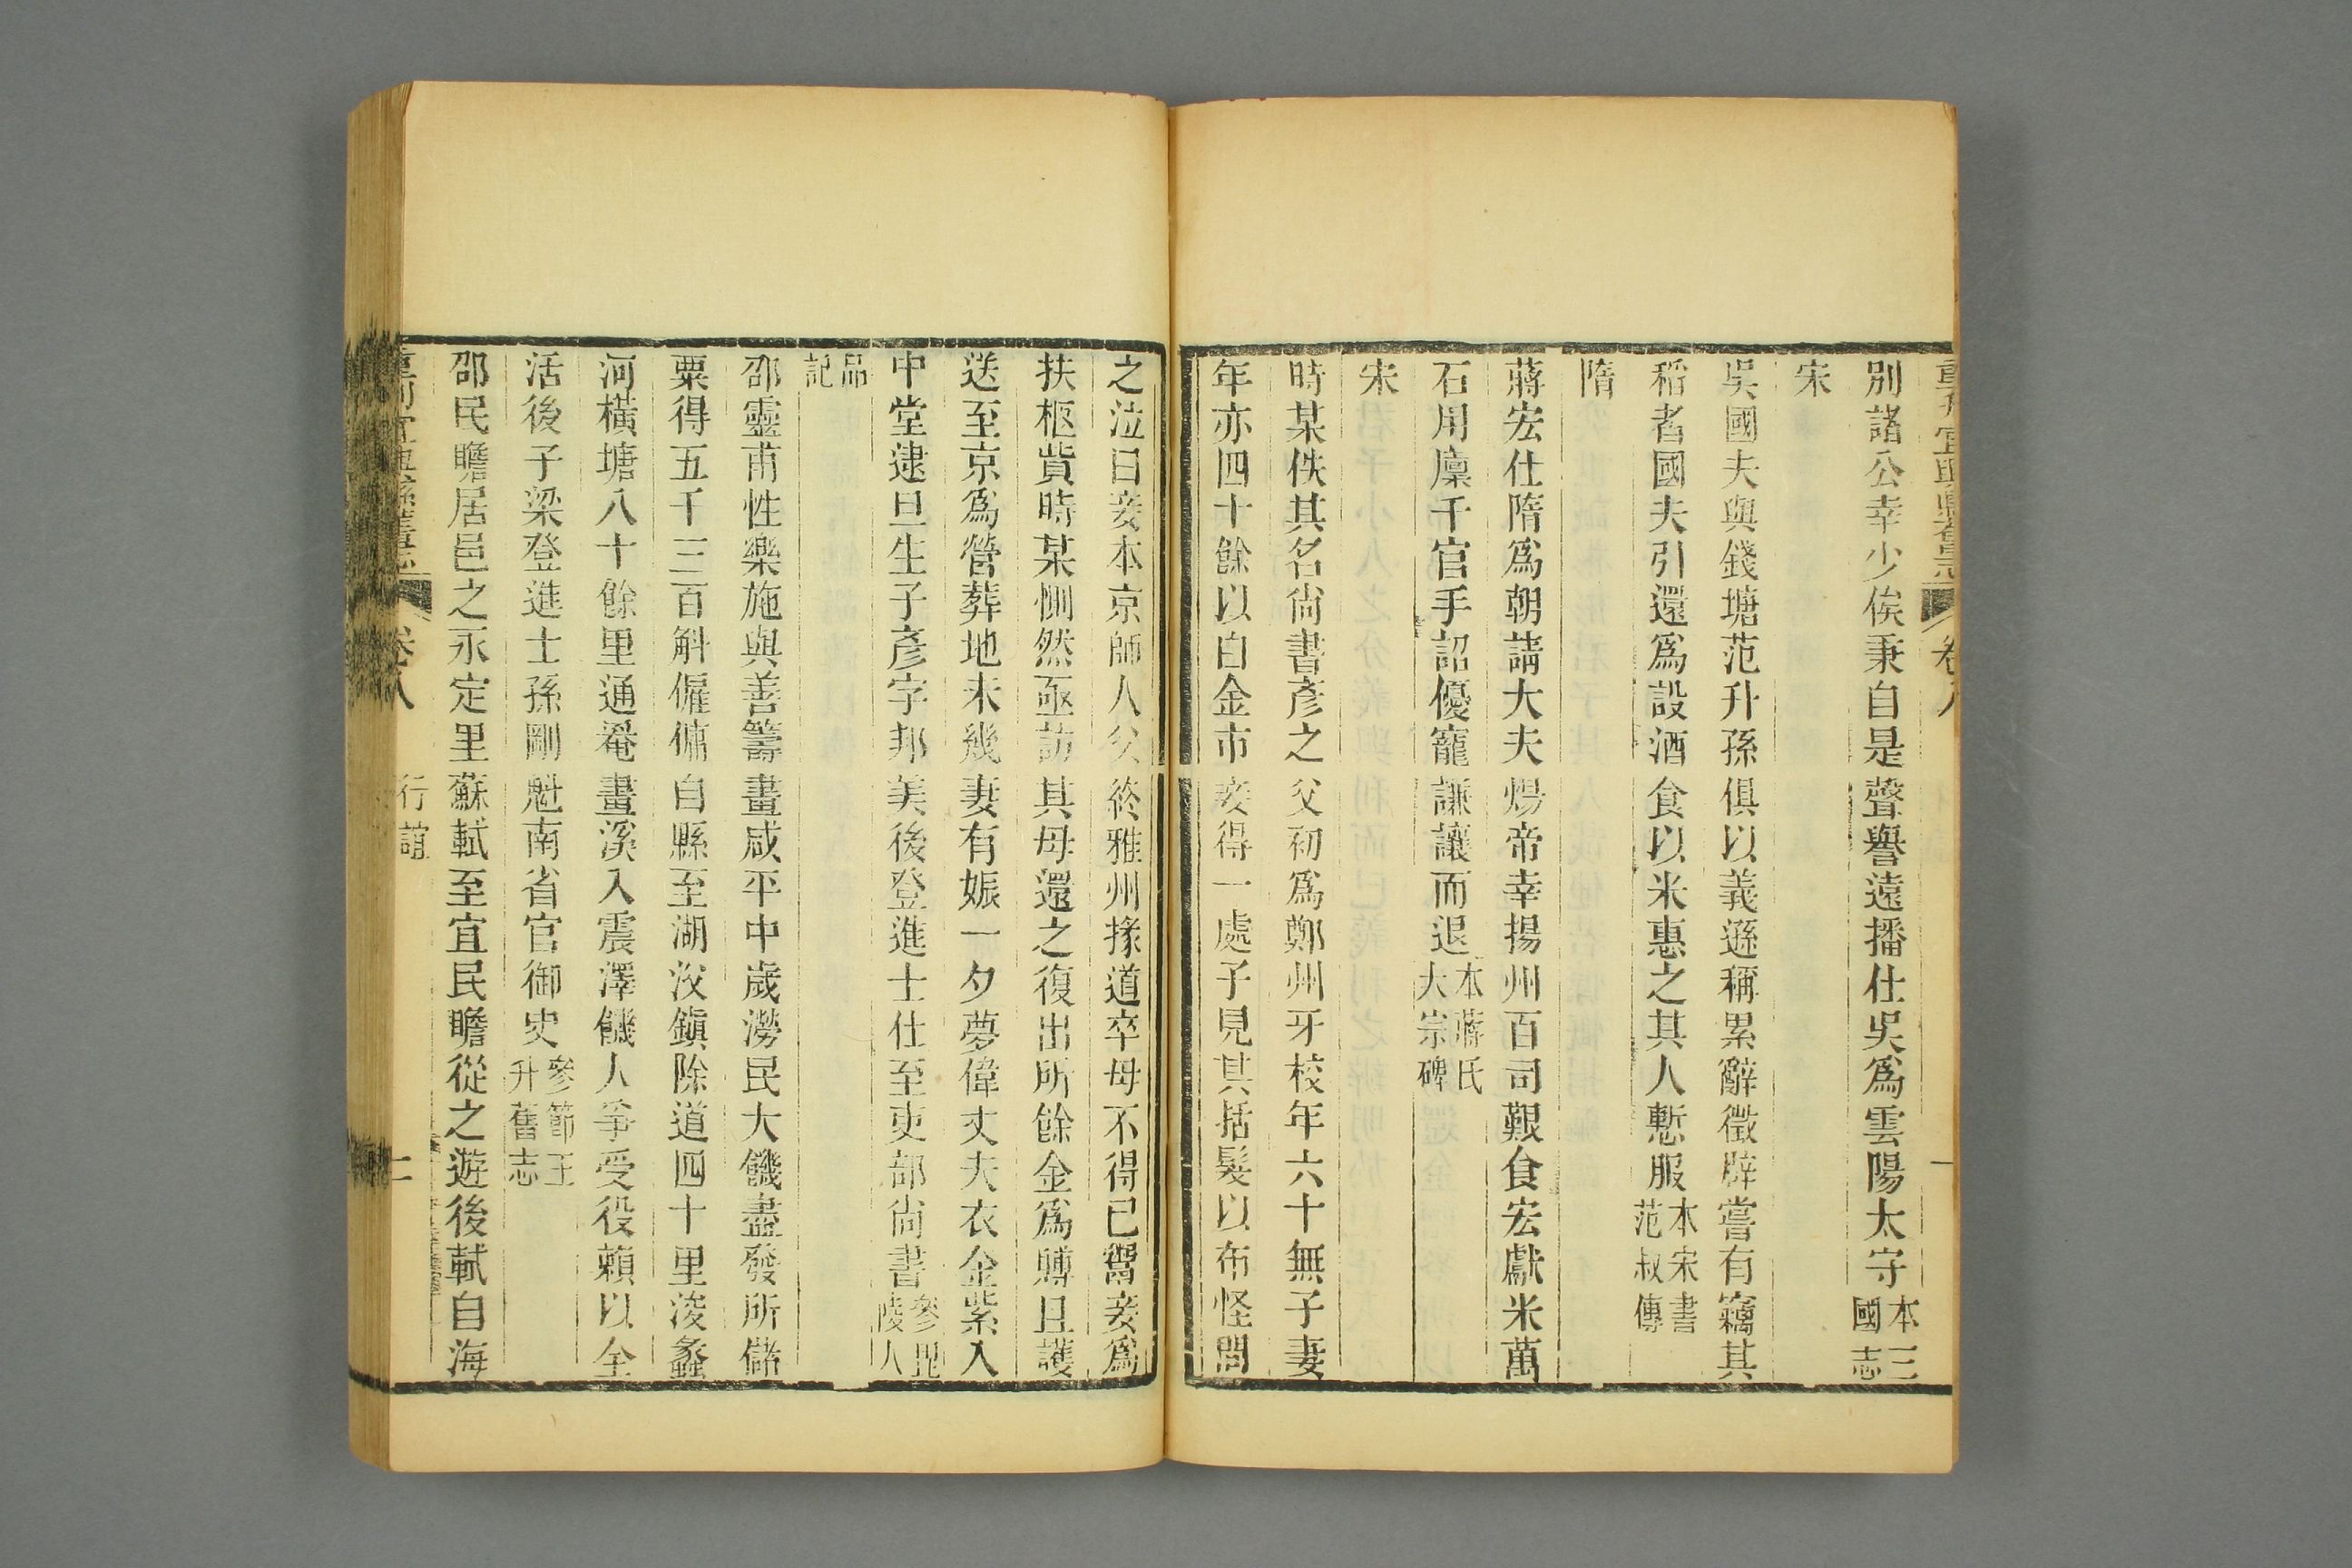 宜興縣舊志 卷八 一
別諸公幸少俟秉自是聲譽遠播仕吳爲雲陽太守本三國志
宋
吳國夫與錢塘范升孫俱以義遜稱累辭徵辟嘗有竊其
稻者國夫引還爲設酒食以米惠之其人慙服本宋書范叔傳
隋
蔣宏仕隋爲朝請大夫煬帝幸揚州百司艱食宏獻米萬
石用廩千官手詔優寵謙讓而退本蔣氏大宗碑
宋
時某佚其名尙書彥之父初爲鄭州牙校年六十無子妻
年亦四十餘以白金市妾得一處子見其括髮以布怪問
之泣曰妾本京師人父終雅州掾道卒母不得已鬻妾爲
扶柩貲時某惻然亟訪其母還之復出所餘金爲賻且護
送至京爲營葬地未幾妻有娠一夕夢偉丈夫衣金紫入
中堂逮旦生子彥字邦美後登進士仕至吏部尙書參毘陵人
品記
邵靈甫性樂施與善籌畫咸平中歲澇民大饑盡發所儲
粟得五千三百斛僱傭自縣至湖㳇鎭除道四十里浚蠡
河橫塘八十餘里通罨畫溪入震澤饑人爭受役賴以全
活後子梁登進士孫剛魁南省官御史參節王升舊志
邵民瞻居邑之永定里蘇軾至宜民瞻從之遊後軾自海
重刊宜興縣舊志 卷八 行誼 二